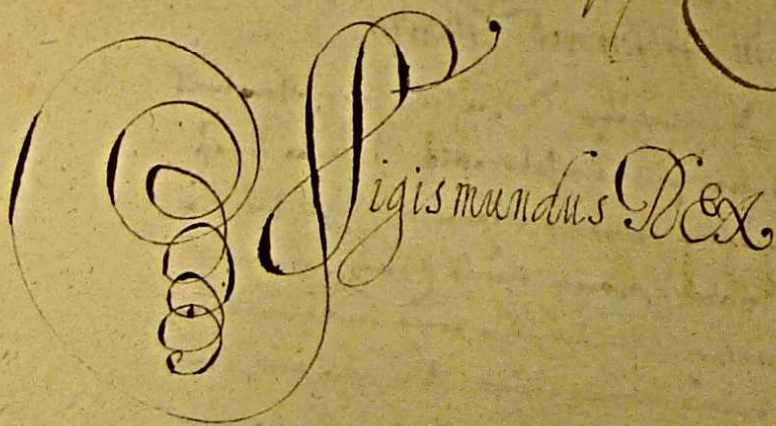 Sigismundus REX